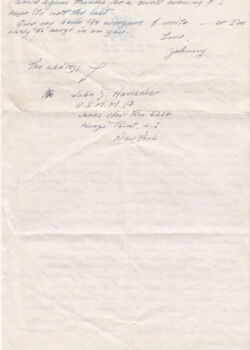 Once again thanks for a swell evening & I
hope it's not the last.
Give my hello to everyone & write — or I'm
likely to barge in on you.
Love,
Johnny
The address
John J Hamacher
U.S.M.M.A
Jones Hall Rm
Kings Point, L.I
New York.